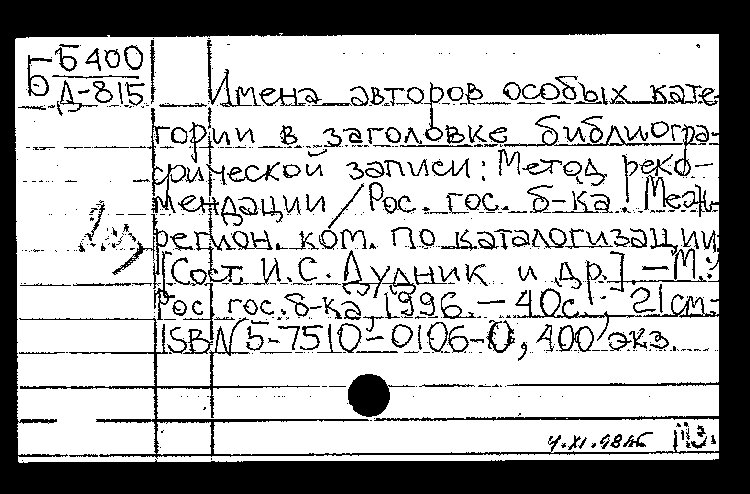 Б Б400
Д-815
Имена авторов особых кате-
гории в заголовке библиогра-
фической записи: Метод. реко-
мендации / Рос. гос. б-ка. Меж-
регион. ком. по каталогизации;
[Сост. И.С. Дудник и др.]. - М.:
Рос. гос. б-ка, 1996. - 40с.; 21см.-
ISBN 5-7510-0106-0, 400 экз.
4.XI.98